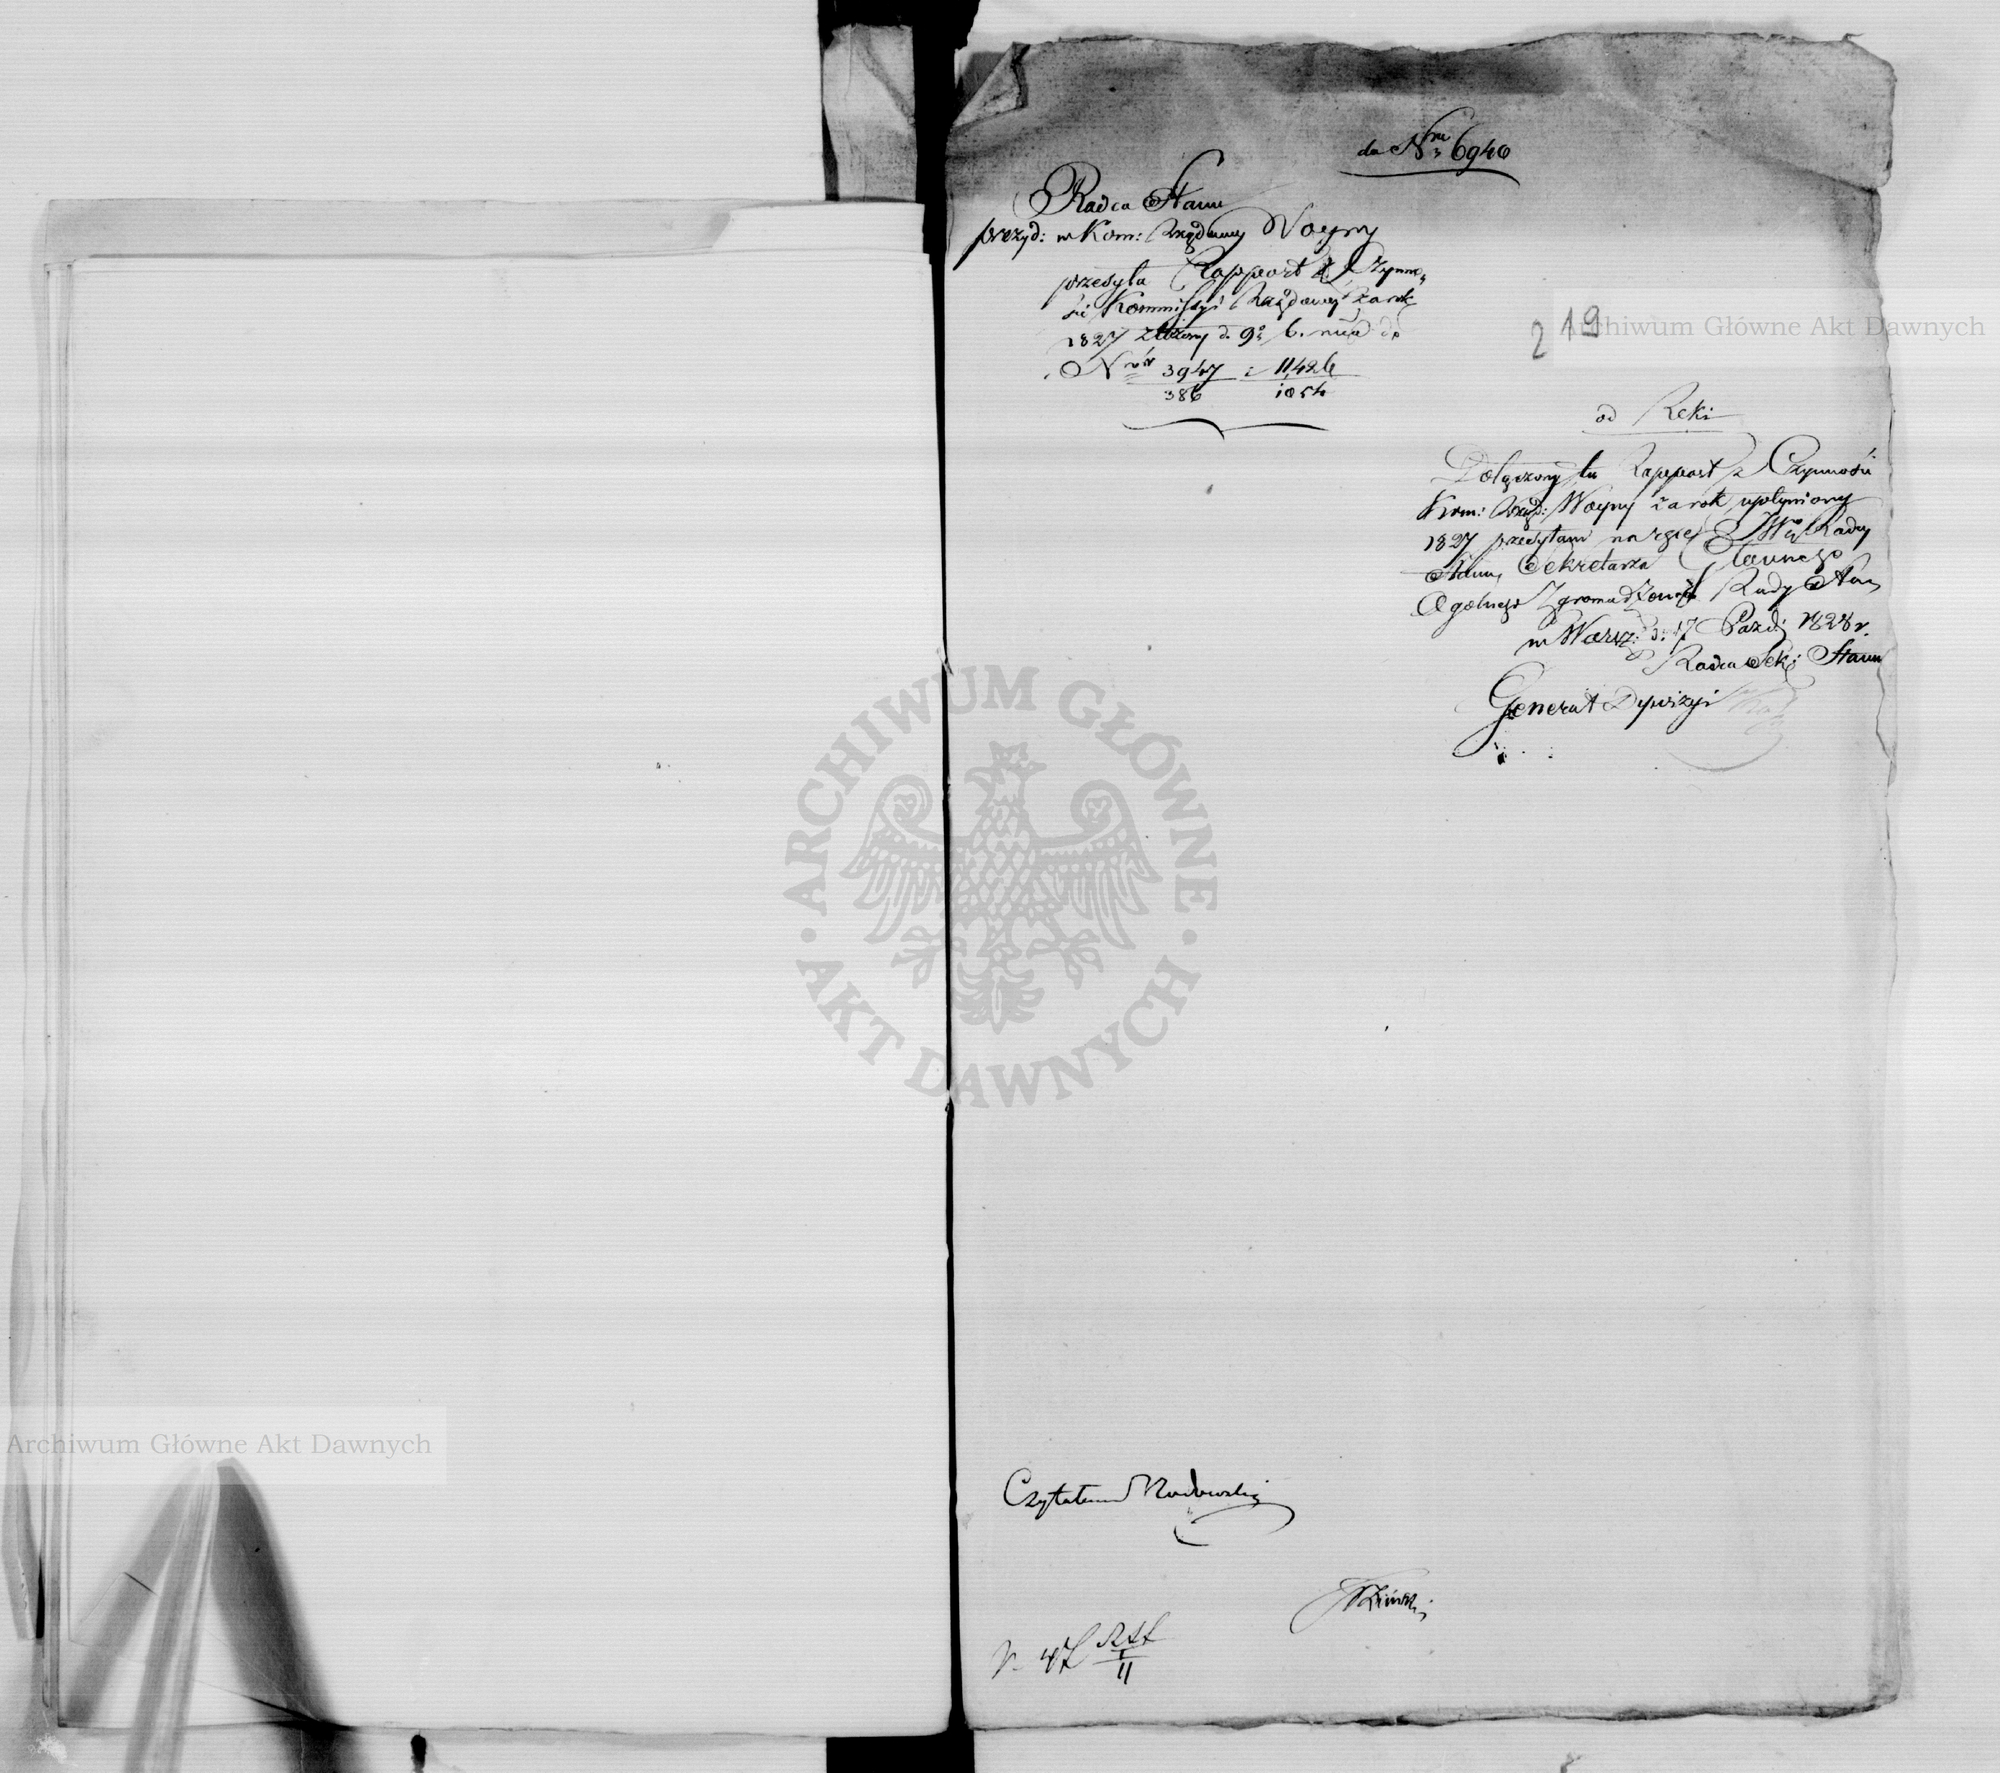 do Nru 6946
Radca Stanu
prezyd: w Kom: Rządowey Woyny
przesyła Rapport z Czynno-
ści Kommissyi Rządowey za rok
1827 złożony d. 9
Nrów 3947 : 11,426
386 1054
219
Archiwum Główne Akt Dawnych
od Ręki
Dołączony tu Rapport z Czynności
Kom: Rząd: Woyny za rok upłyniony
1827 przesyłam na ręce Radcy
Stanu, Sekretarza
Ogólnego Zgromadzenia Rady Stanu
w Warsz: d. 17 Paźdz: 1828 r.
Radca Sekr Stanu
Generał Dywizyi
ARCHIWUM GŁÓWNE
AKT DAWNYCH
Archiwum Główne Akt Dawnych
Czytałem
II